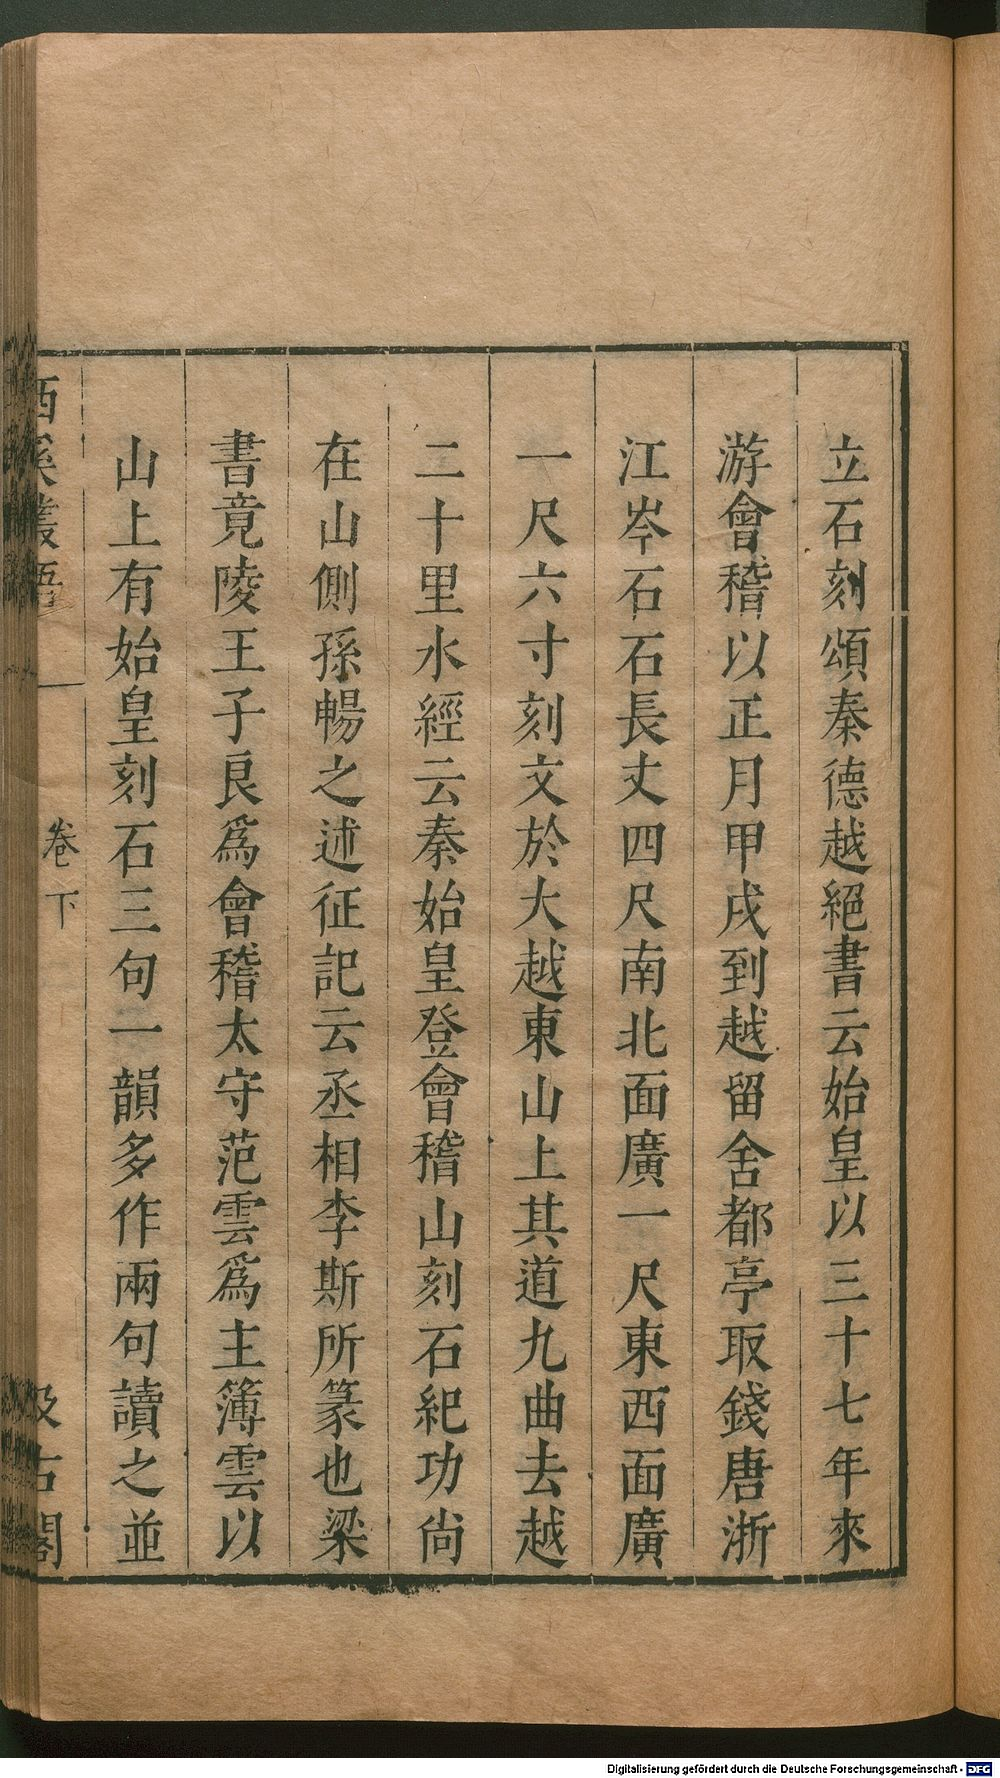 立石刻頌秦德越絕書云始皇以三十七年來
游會稽以正月甲戌到越留舍都亭取錢唐浙
江岑石石長丈四尺南北面廣一尺東西面廣
一尺六寸刻文於大越東山上其道九曲去越
二十里水經云秦始皇登會稽山刻石紀功尚
在山側孫暢之述征記云丞相李斯所篆也梁
書竟陵王子良爲會稽太守范雲爲主簿雲以
山上有始皇刻石三句一韻多作兩句讀之並
西溪叢語 卷下 汲古閣
Digitalisierung gefördert durch die Deutsche Forschungsgemeinschaft - DFG